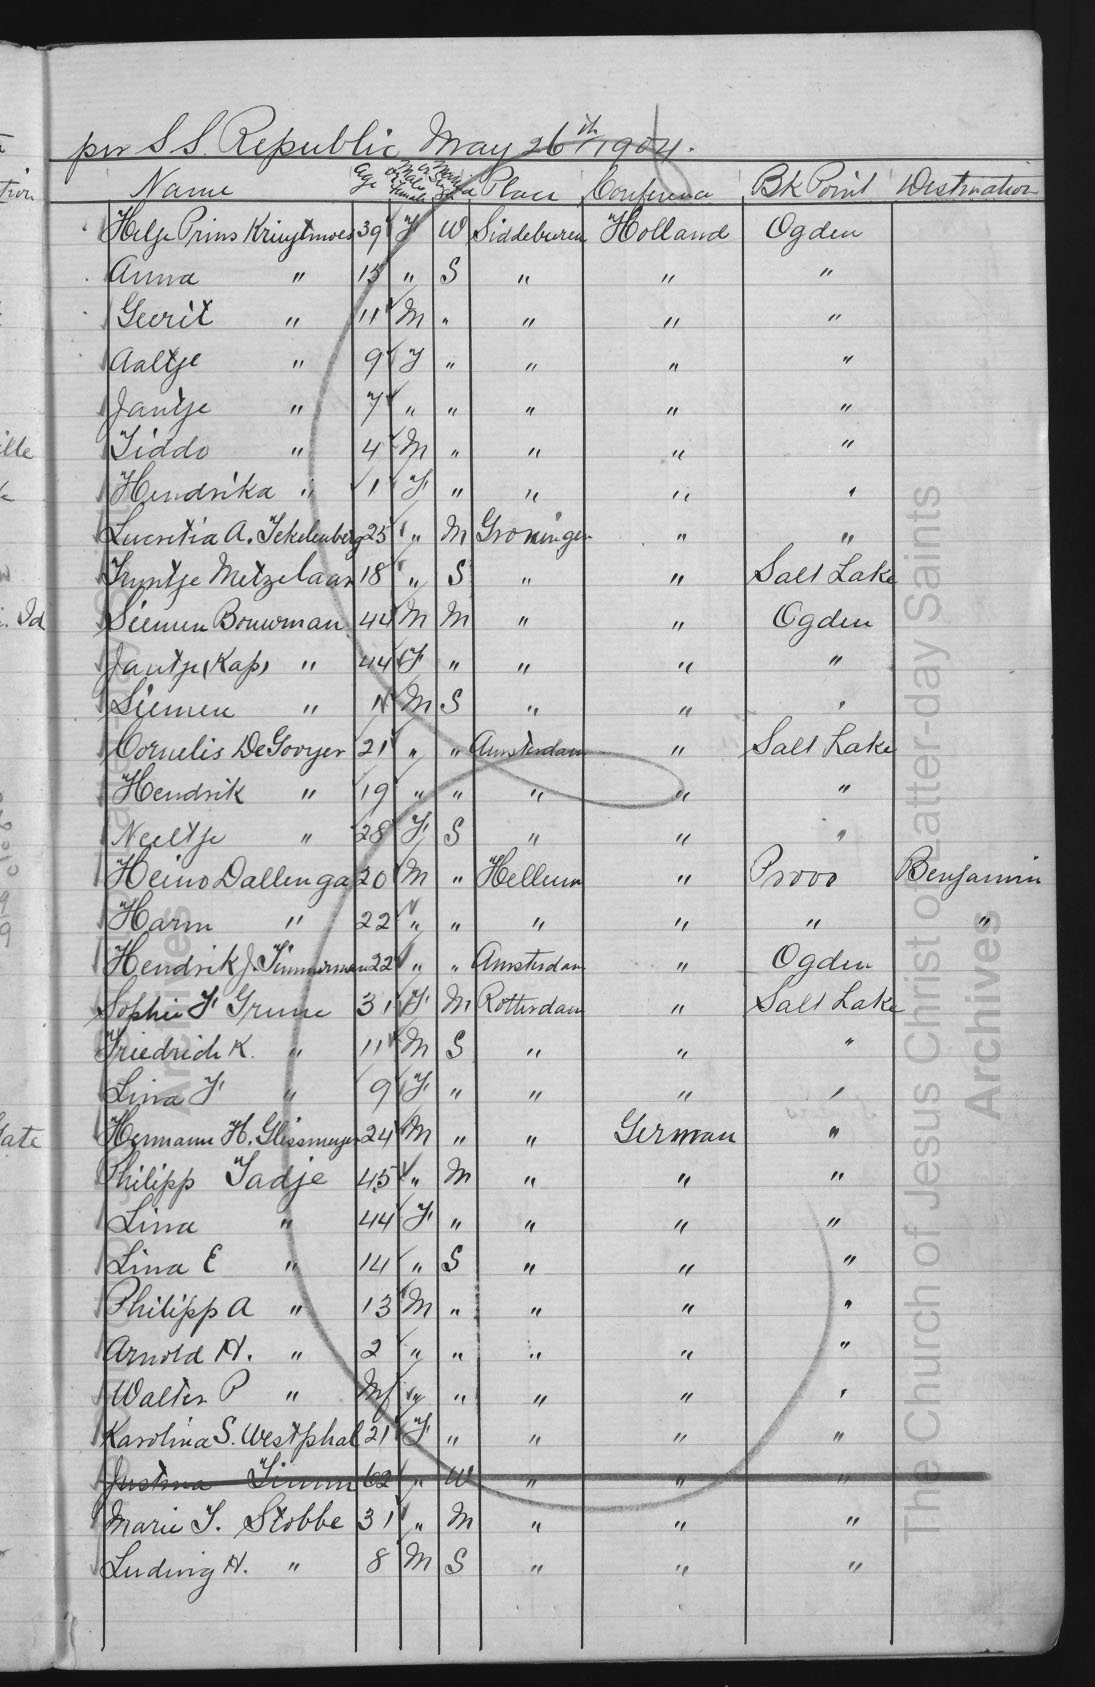 per S.S. Republic May 26th 1904.
Name Age Male or Female Married or Single Place Conference Bk Point Destination
Helje Prins Kruytmoes 39 F W Siddeburen Holland Ogden
Anna " 15 " S " " "
Gerrit " 11 M " " " "
Aaltje " 9 F " " " "
Jantje " 7 " " " " "
Tiddo " 4 M " " " "
Hendrika " 1 F " " " "
Lucretia A. Tekelenberg 25 " M Groningen " "
Truntje Metzelaar 18 " S " " Salt Lake
Siemen Bouwman 44 M M " " Ogden
Jantje (Kap) " 44 F " " " "
Siemen " 11 M S " " "
Cornelis De Gooyer 21 " " Amsterdam " Salt Lake
Hendrik " 19 " " " " "
Neeltje " 28 F S " " "
Heino Dallenga 20 M " Hellum " Provo Benjamin
Harm " 22 " " " " " "
Hendrik J. Timmerman 22 " " Amsterdam " Ogden
Sophie F Grune 31 F M Rotterdam " Salt Lake
Friedrich K. " 11 M S " " "
Lina F " 9 F " " " "
Hermann H. Glissmeyer 24 M " " German "
Philipp Tadje 45 " M " " "
Lina " 44 F " " " "
Lina E " 14 " S " " "
Philipp A " 13 M " " " "
Arnold H. " 2 " " " " "
Walter P " Inf " " " " "
Karolina S. Westphal 21 F " " " "
Justina Timm 62 " W " " "
Marie T. Stobbe 31 " M " " "
Ludwig H. " 8 M S " " "
The Church of Jesus Christ of Latter-day Saints
Archives